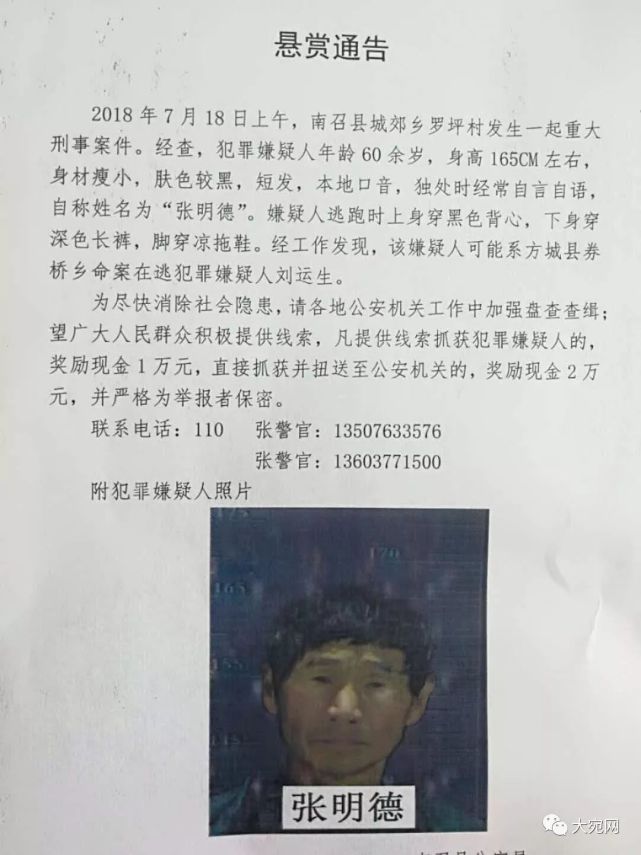 悬赏通告
2018 年 7 月 18 日上午，南召县城郊乡罗坪村发生一起重大
刑事案件。经查，犯罪嫌疑人年龄 60 余岁，身高 165CM 左右，
身材瘦小，肤色较黑，短发，本地口音，独处时经常自言自语，
自称姓名为“张明德”。嫌疑人逃跑时上身穿黑色背心，下身穿
深色长裤，脚穿凉拖鞋。经工作发现，该嫌疑人可能系方城县券
桥乡命案在逃犯罪嫌疑人刘运生。
为尽快消除社会隐患，请各地公安机关工作中加强盘查查缉；
望广大人民群众积极提供线索，凡提供线索抓获犯罪嫌疑人的，
奖励现金 1 万元，直接抓获并扭送至公安机关的，奖励现金 2 万
元，并严格为举报者保密。
联系电话：110 张警官：13507633576
张警官：13603771500
附犯罪嫌疑人照片
175
170
165
155
张明德
大宛网